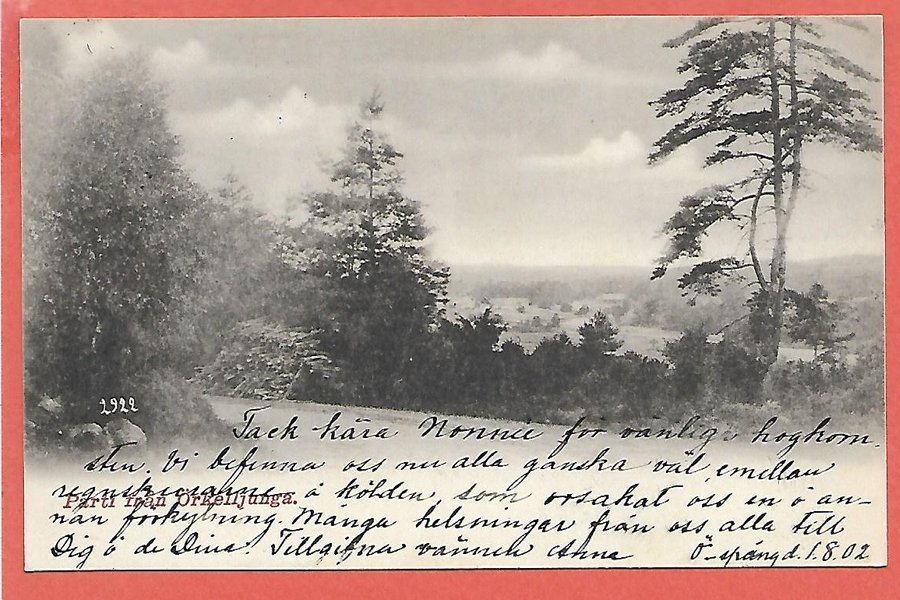 2922
Tack kära Nonnie för vänliga hogkom
sten. Vi befinna oss nu alla ganska väl, emellan
regnskurarna å kölden, som orsakat oss en ö an-
Parti från Örkelljunga.
nan förkylning. Många helsningar från oss alla till
Dig ö de Dina. Tillgifna vännen Anna
Ö-spång d. 1.8.02